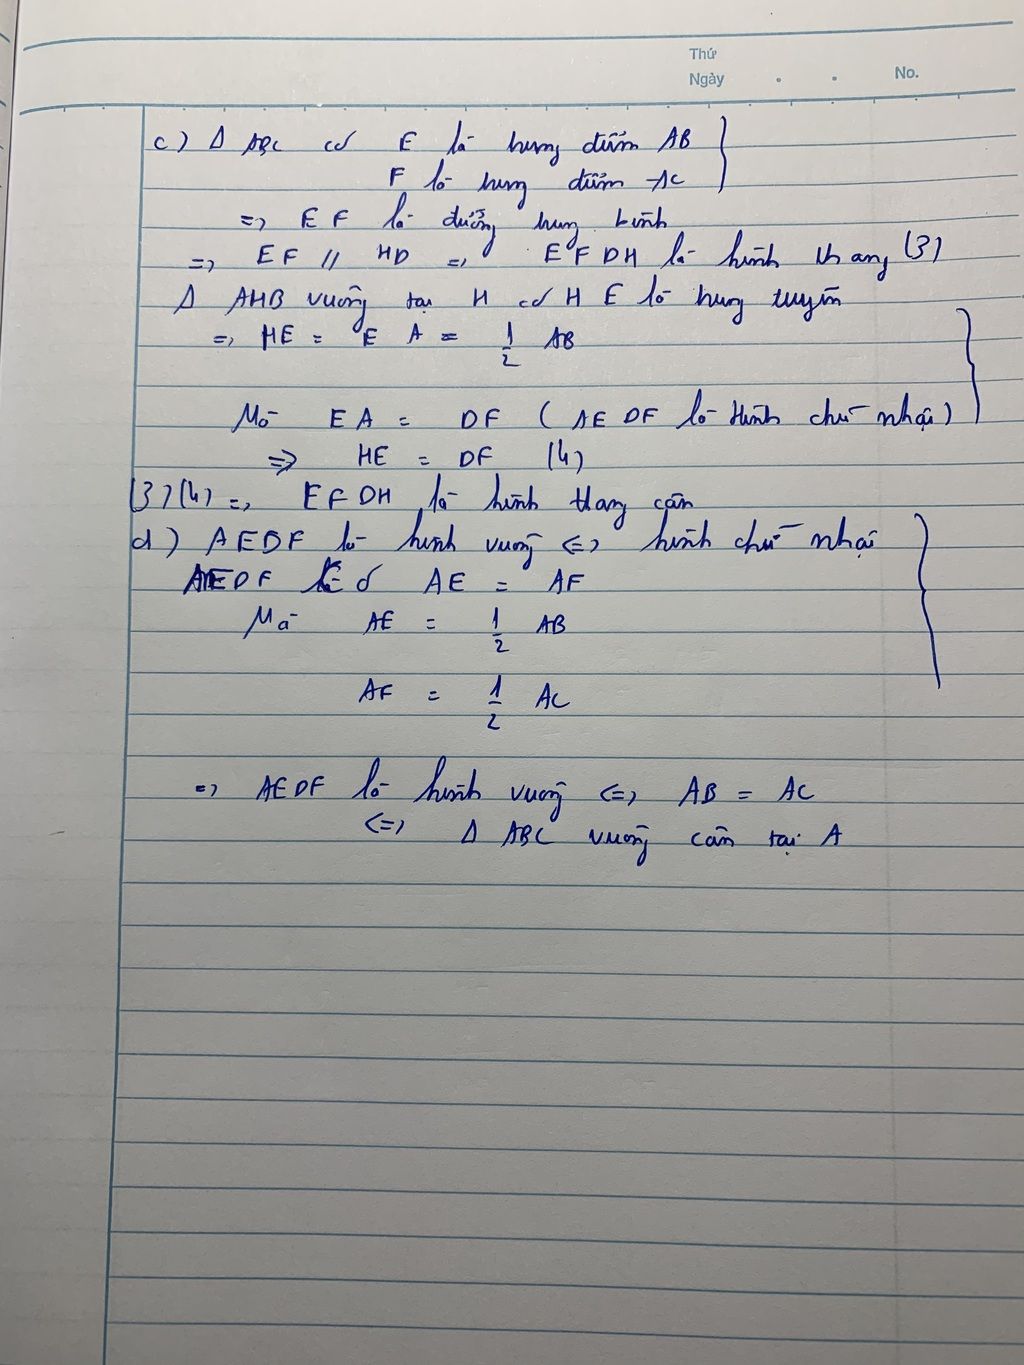 Thứ
Ngày . . No.
c) Δ ABC có E là trung điểm AB
F là trung điểm AC
=> EF là đường trung bình
=> EF // HD => EFDH là hình thang (3)
Δ AHB vuông tại H có HE là trung tuyến
=> HE = EA = 1/2 AB
Mà EA = DF (AEDF là hình chữ nhật)
=> HE = DF (4)
(3)(4) => EFDH là hình thang cân
d) AEDF là hình vuông <=> hình chữ nhật
AEDF có AE = AF
Mà AE = 1/2 AB
AF = 1/2 AC
=> AEDF là hình vuông <=> AB = AC
<=> Δ ABC vuông cân tại A